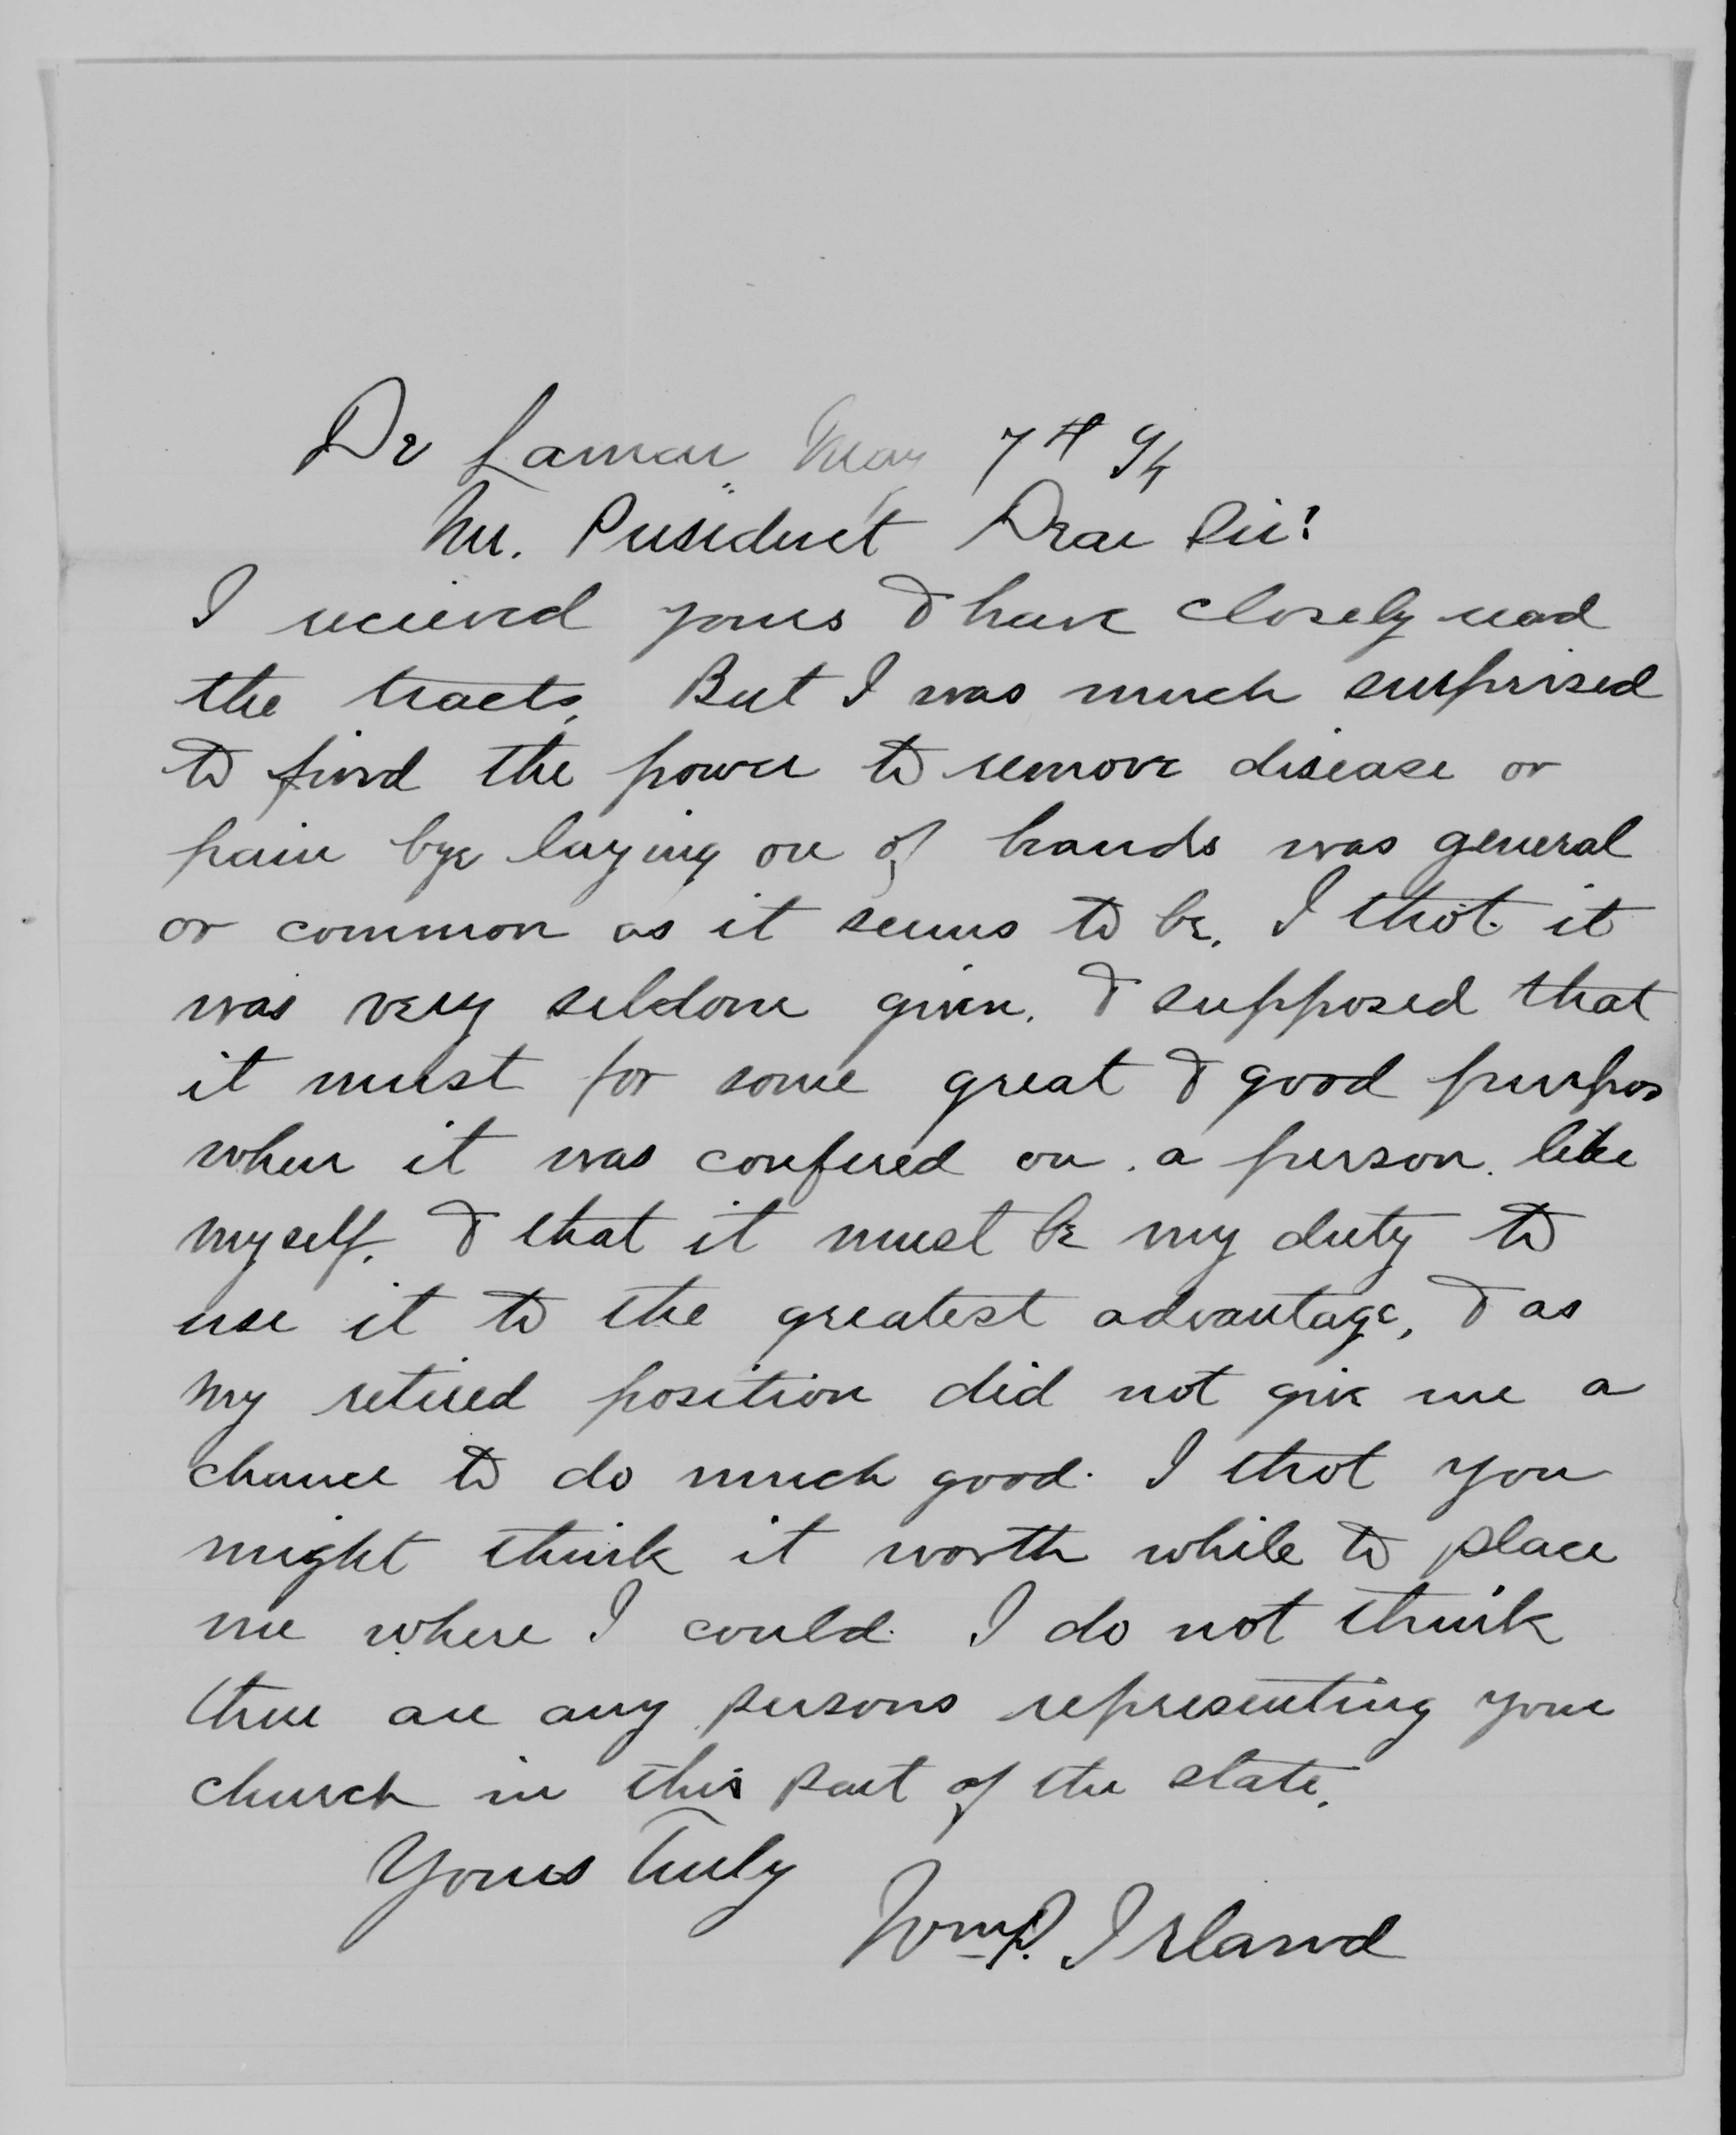 De Lamar May 7th 94
Mr. President Dear Sir!
I recieved yours & have closely read
the tracts. But I was much surprised
to find the power to remove disease or
pain bye laying on of hands was general
or common as it seems to be. I thot it
was very seldom given. & supposed that
it must for some great & good purpos
when it was confered on a person like
myself. & that it must be my duty to
use it to the greatest advantage, & as
my retired position did not give me a
chance to do much good. I thot you
might think it worth while to place
me where I could. I do not think
there are any persons representing your
church in this part of the state.
Yours Truly
Wm P. Irland